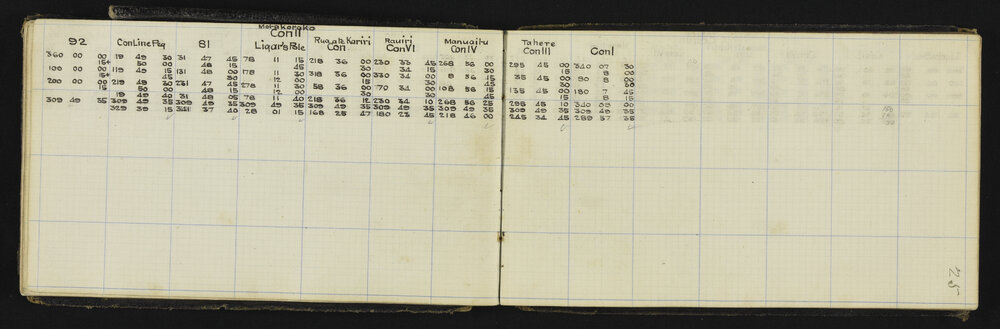 Motakorako
Con II Ruaate Kariri Rauiri Manuaitu Tahere
92 Con Line Peg 81 Ligar's Pole Con Con VI Con IV Con III Con I
360 00 00 19 49 30 31 47 45 78 11 15 218 36 00 230 33 45 268 36 00 295 45 00 340 07 30
15+ 50 00 48 15 45 30 34 15 30 15 8 00
100 00 00 119 49 15 131 48 00 178 11 30 318 36 00 330 34 00 8 36 15 35 45 00 80 8 00
15+ 45 30 12 00 15 30 45 30 30
200 00 00 219 49 30 231 47 45 278 11 30 58 36 00 70 34 00 108 36 15 135 45 00 180 7 45
15 50 00 48 15 12 00 30 30 45 15 8 15
19 49 40 31 48 05 78 11 40 218 36 12 230 34 10 268 36 25 295 45 10 340 08 00
309 49 35 309 49 35 309 49 35 309 49 35 309 49 35 309 49 35 309 49 35 309 49 35 309 49 35
329 39 15 341 37 40 28 01 15 168 25 47 180 23 45 218 26 00 245 34 45 289 57 35
25